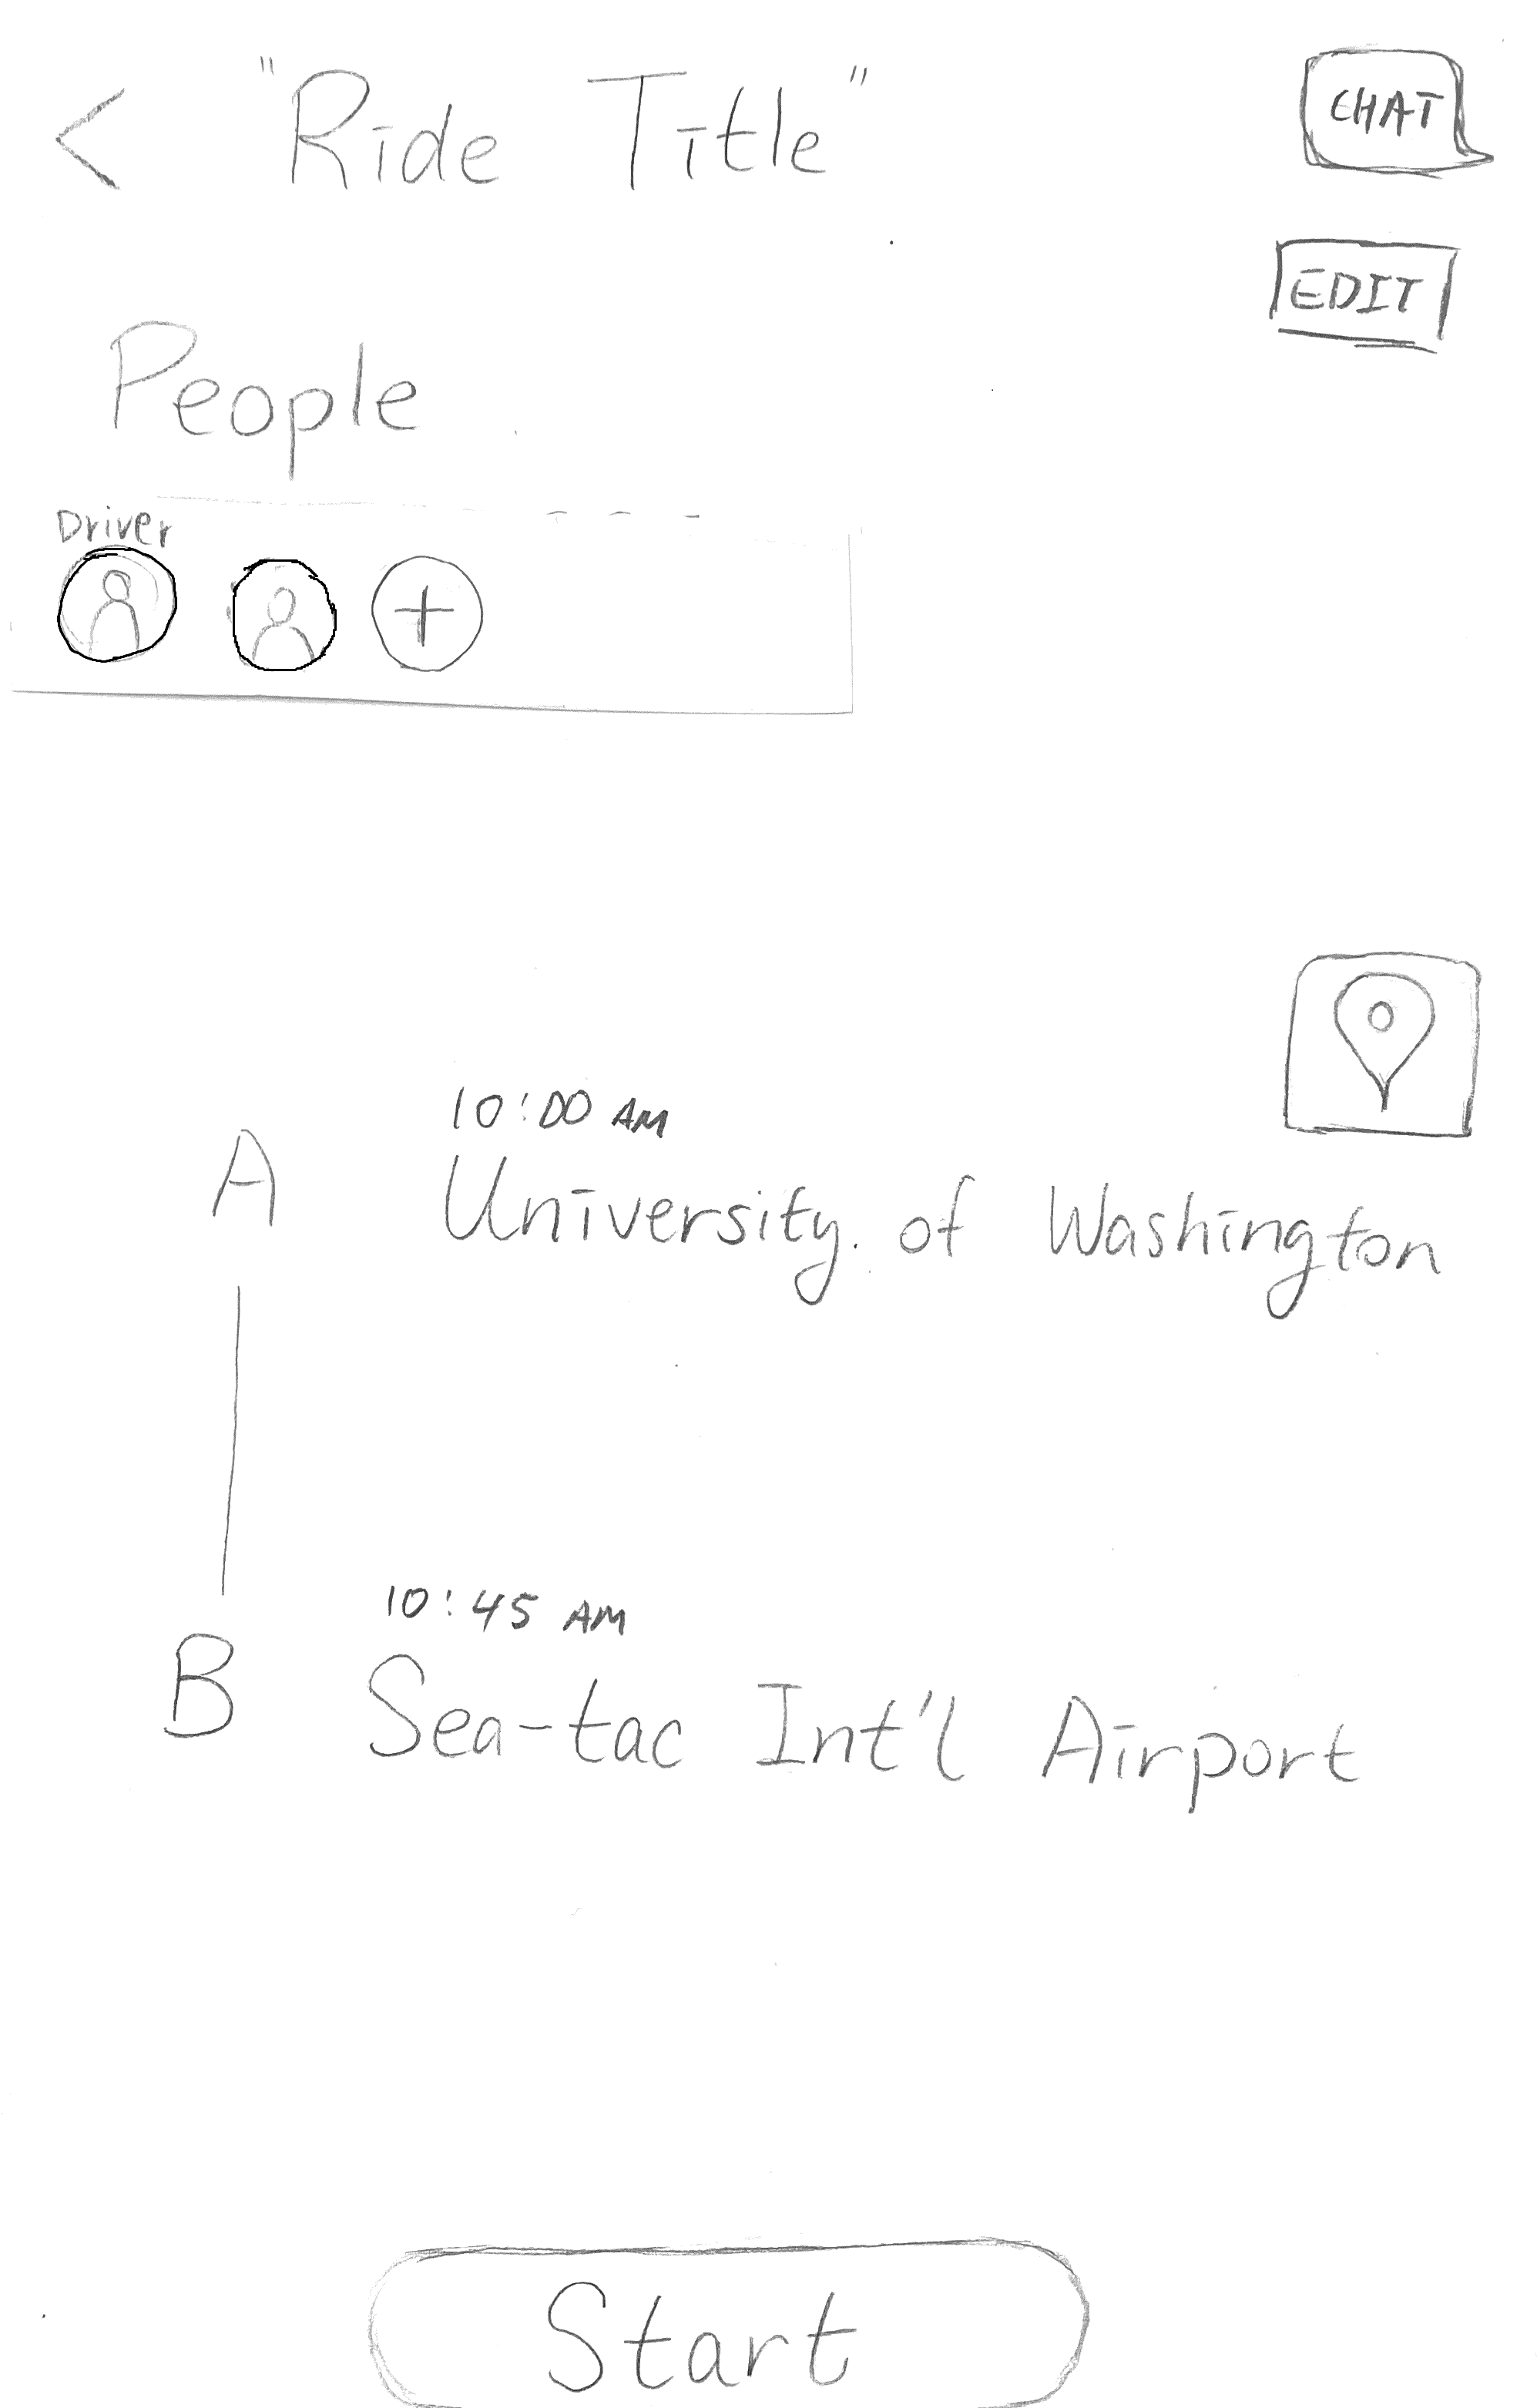 < "Ride Title"
CHAT
EDIT
People
Driver
+
10:00 AM
A University of Washington
10:45 AM
B Sea-tac Int'l Airport
Start